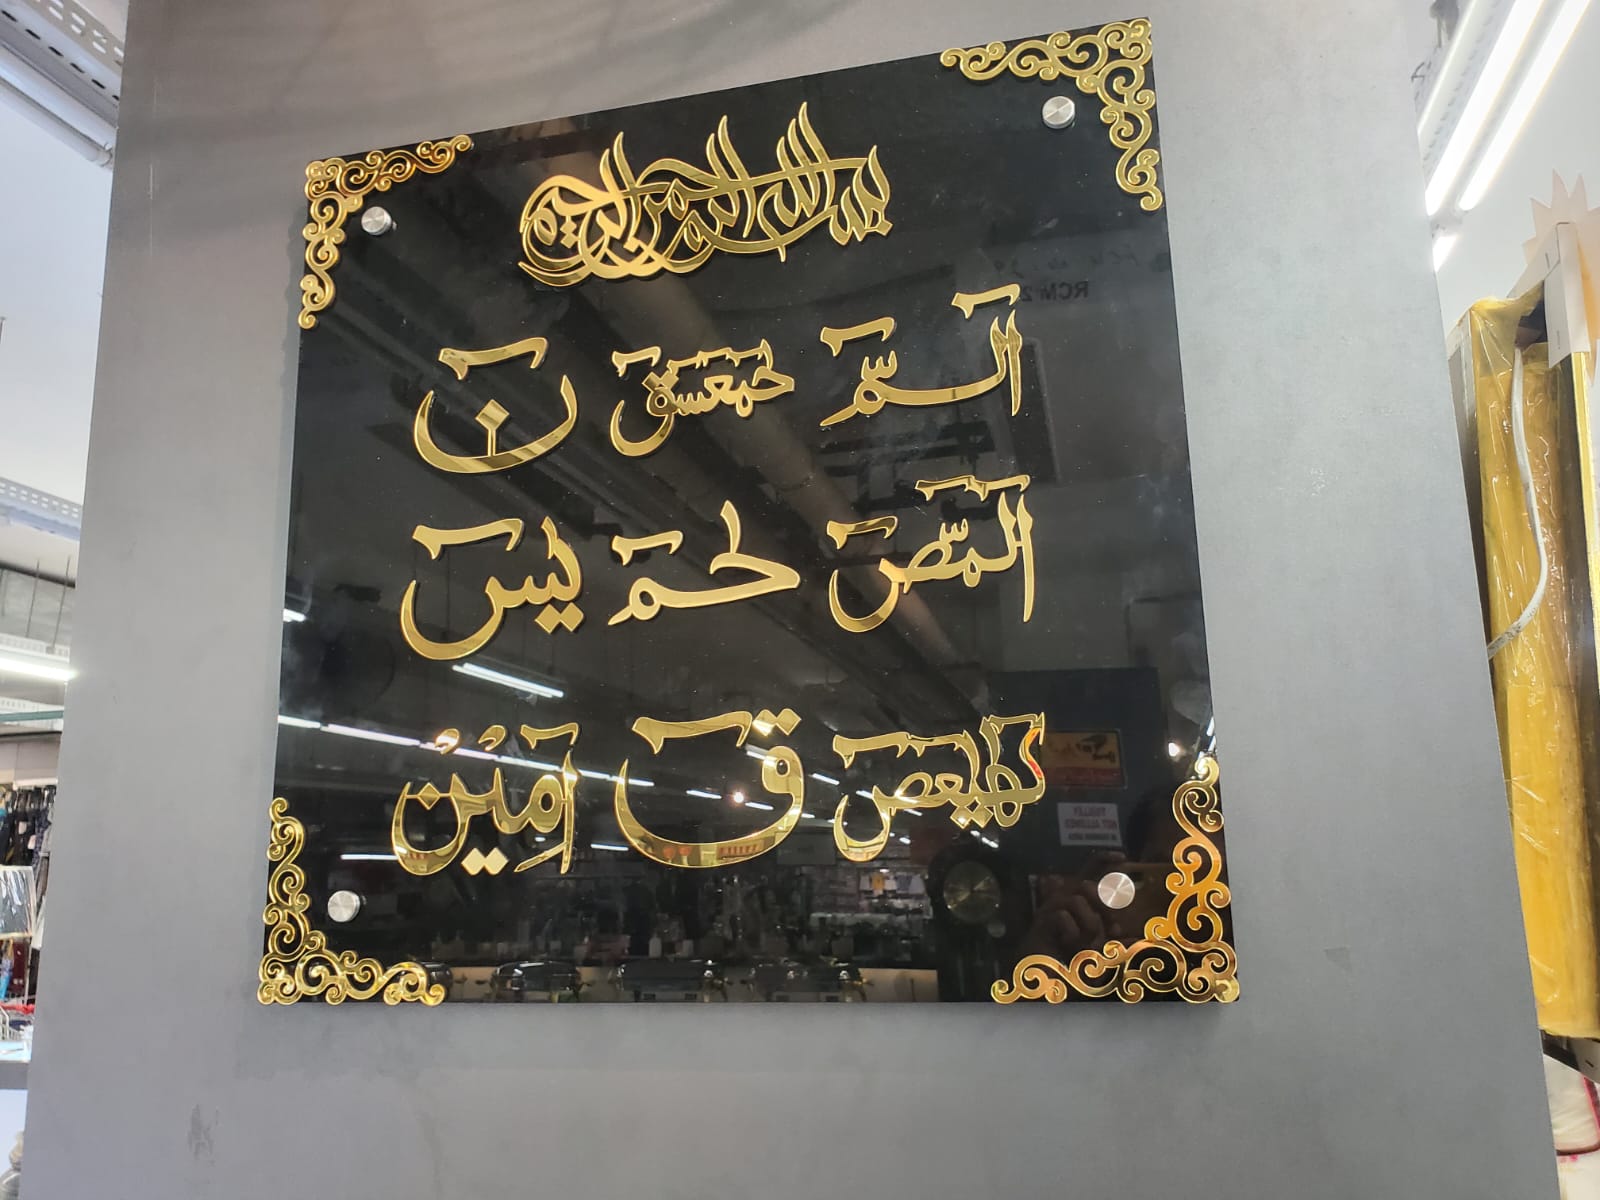 بسم الله الرحمن الرحيم
الٓمّٓ حٓمٓعٓسٓقٓ نٓ
الٓمّٓصٓ حٰمٓ يٰسٓ
كٓهٰيٰعٓصٓ قٓ آمِيْنْ